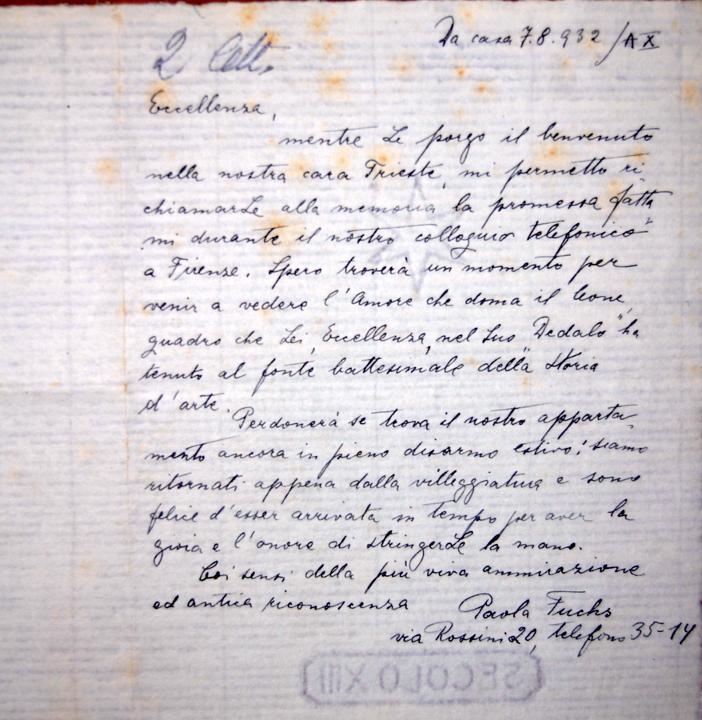 Da casa 7.8.932 / A X
2 lett.
Eccellenza,
mentre Le porgo il benvenuto
nella nostra cara Trieste, mi permetto ri-
chiamarLe alla memoria la promessa fatta
mi durante il nostro colloquio telefonico
a Firenze. Spero troverà un momento per
venir a vedere l'Amore che doma il leone,
quadro che Lei, Eccellenza, nel Suo "Dedalo" ha
tenuto al fonte battesimale della storia
d'arte.
Perdonerà se trova il nostro apparta-
mento ancora in pieno disarmo estivo: siamo
ritornati appena dalla villeggiatura e sono
felice d'esser arrivata in tempo per aver la
gioia e l'onore di stringerLe la mano.
Coi sensi della più viva ammirazione
ed antica riconoscenza
Paola Fuchs
via Rossini 20, telefono 35-14
SECOLO XIII